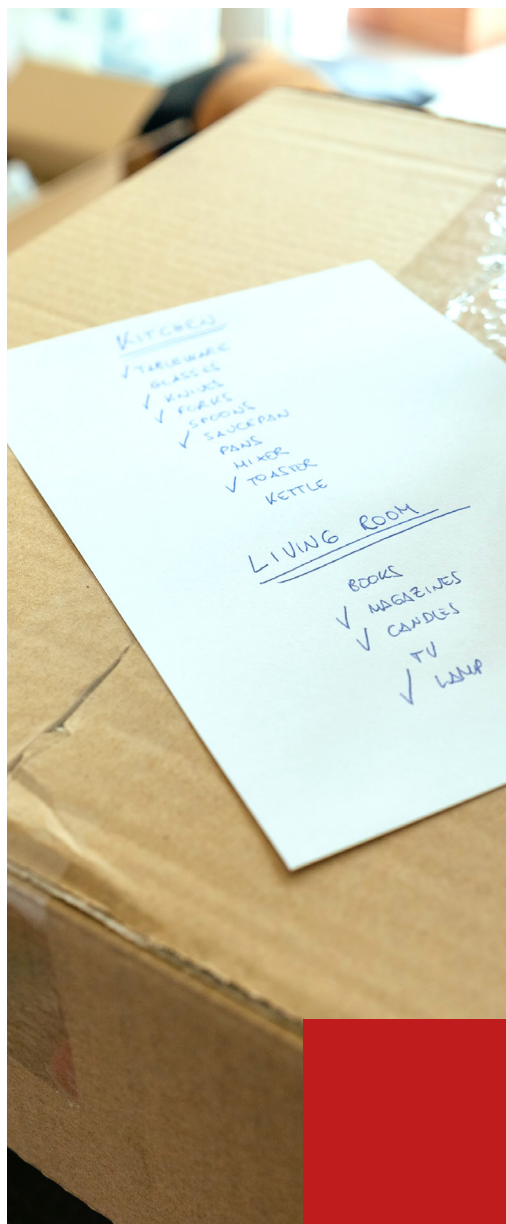 KITCHEN
✓ TABLEWARE
GLASSES
✓ KNIVES
✓ FORKS
SPOONS
✓ SAUCEPAN
PANS
MIXER
✓ TOASTER
KETTLE
LIVING ROOM
BOOKS
✓ MAGAZINES
✓ CANDLES
TV
✓ LAMP